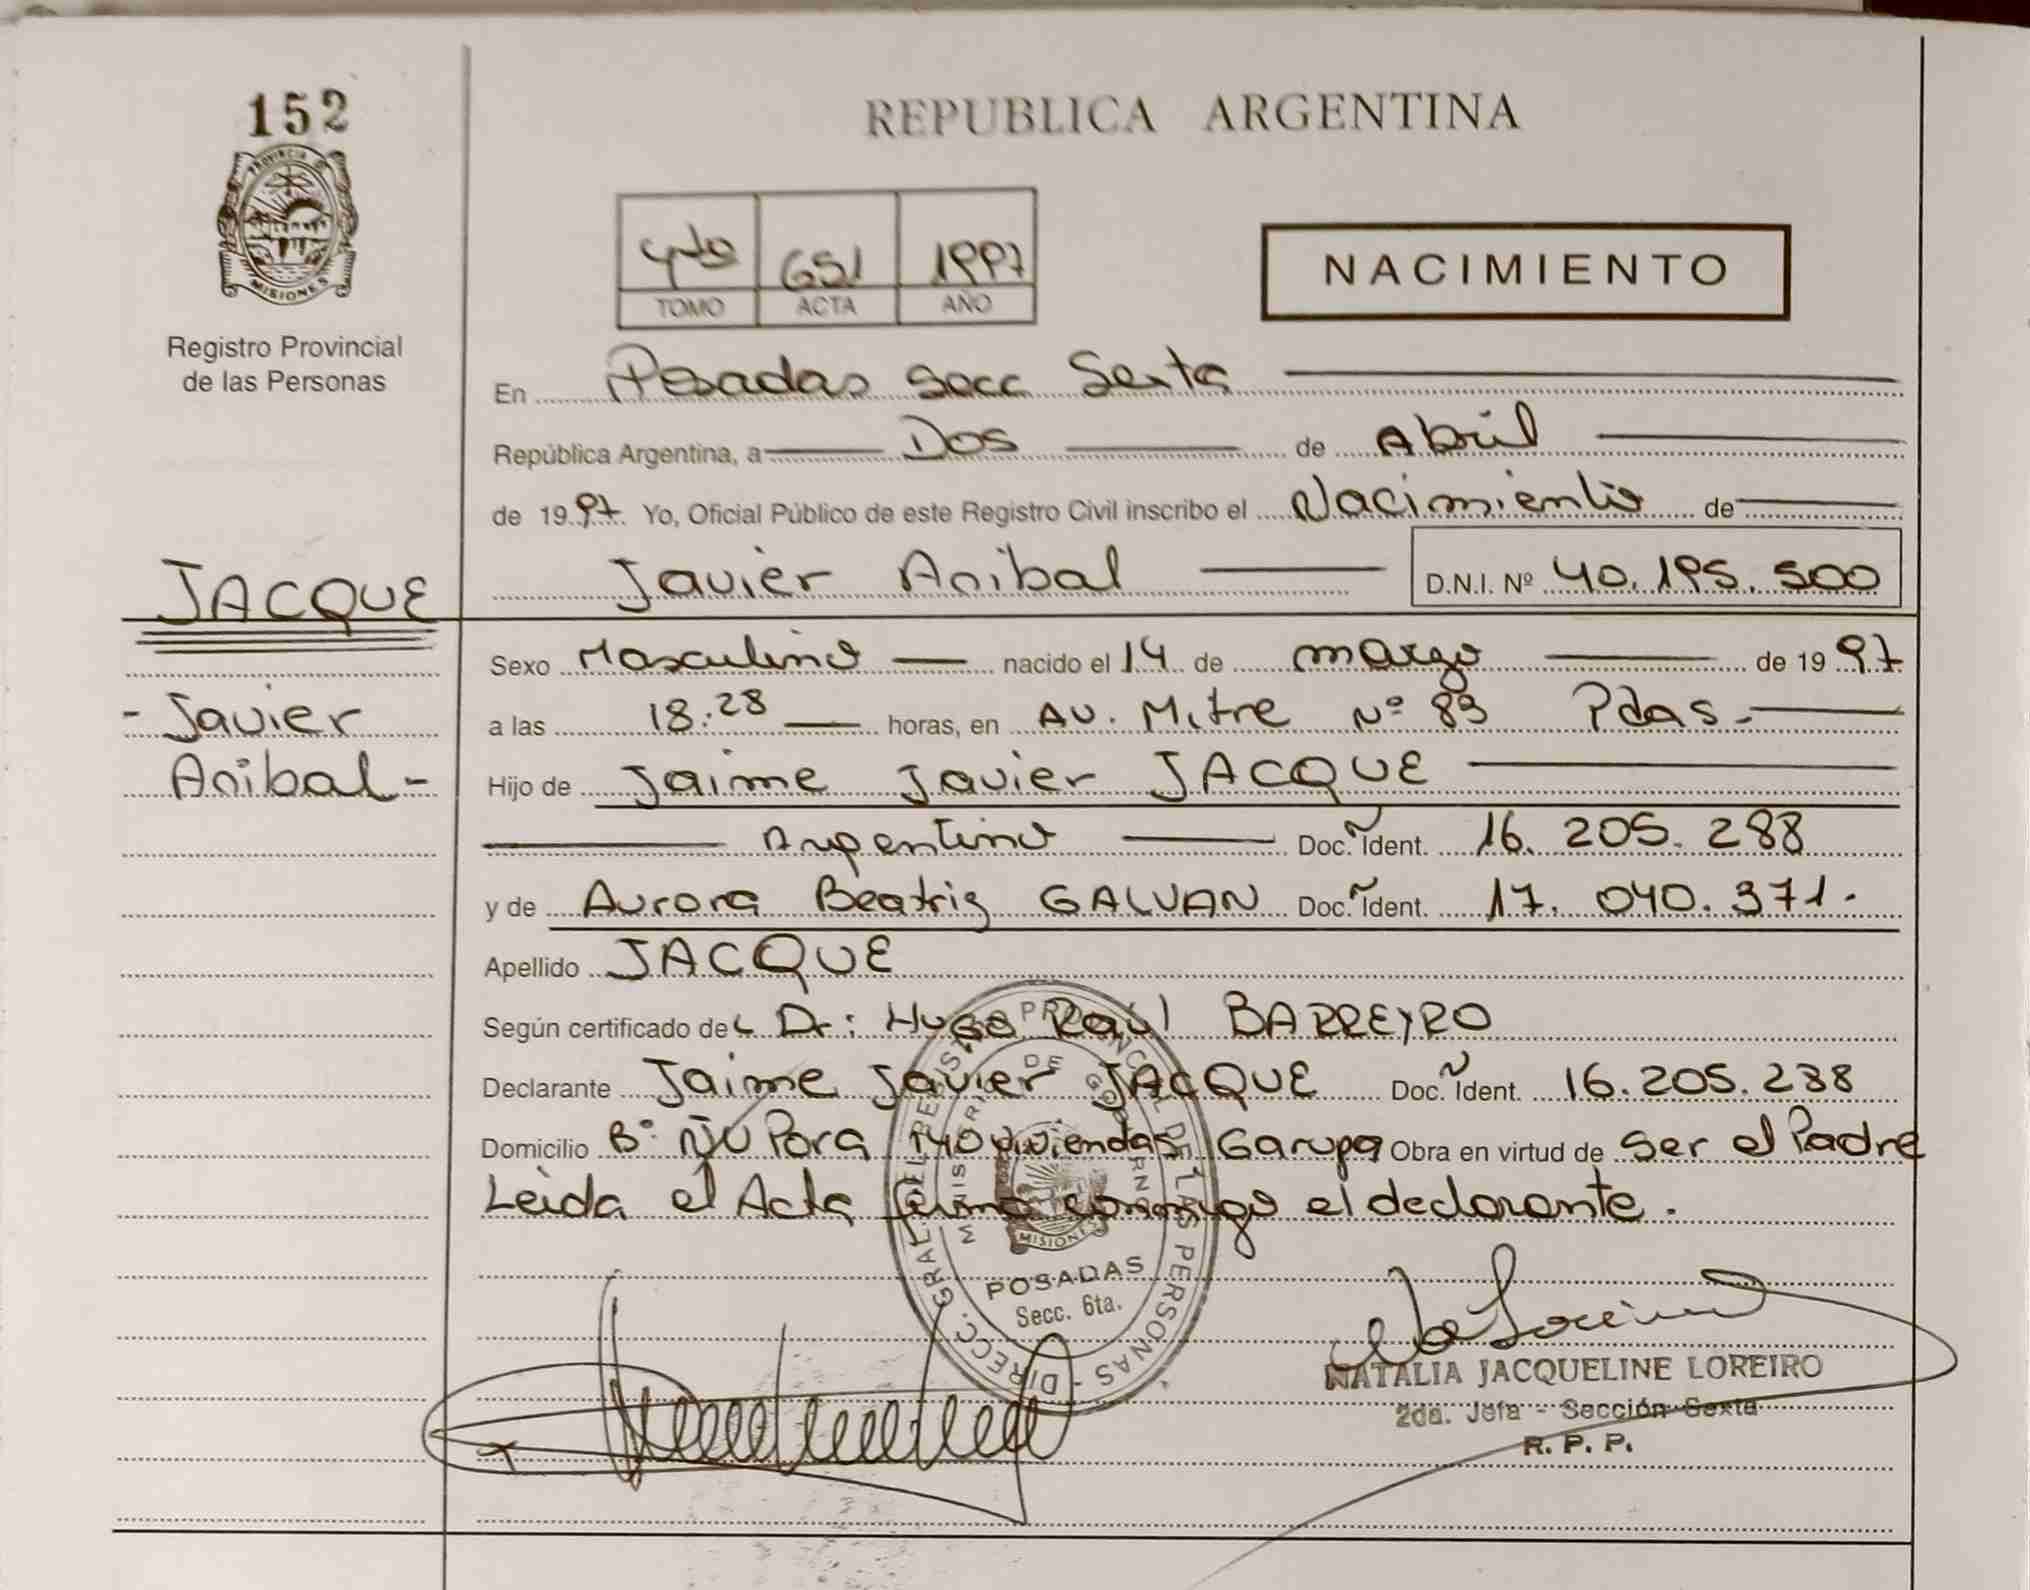 152
PROVINCIA DE
MISIONES
Registro Provincial
de las Personas
REPUBLICA ARGENTINA
4to 651 1997
TOMO ACTA AÑO
NACIMIENTO
En Posadas Secc Sexta
República Argentina, a Dos de Abril
de 1997 Yo, Oficial Público de este Registro Civil inscribo el Nacimiento de
Javier Anibal D.N.I. Nº 40.195.500
JACQUE
- Javier
Anibal -
Sexo Masculino nacido el 14 de marzo de 1997
a las 18:28 horas, en Av. Mitre Nº 83 Pdas.
Hijo de Jaime Javier JACQUE
Argentino Doc. Ident. 16.205.288
y de Aurora Beatriz GALVAN Doc. Ident. 17.040.371.
Apellido JACQUE
Según certificado del Dr: Hugo Raúl BARREYRO
Declarante Jaime Javier JACQUE Doc. Ident. 16.205.238
Domicilio Bº ÑU Pora 140 viviendas Garupa Obra en virtud de ser el Padre
Leida el Acta firma conmigo el declarante.
DIRECC. GRAL. DEL REGISTRO PROVINCIAL DE LAS PERSONAS -
MINISTERIO DE GOBIERNO
MISIONES
POSADAS
Secc. 6ta.
NATALIA JACQUELINE LOREIRO
2da. Jefa - Sección Sexta
R. P. P.